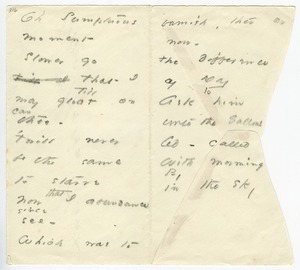 Oh Sumptuous
moment
Slower go
that I
Till
may gloat on
can
thee -
'Twill never
be the same
to starve
that
Now I abundance
since
see -
Which was to
famish, then or
now -
the difference
of Day
to
Ask him
unto the Gallows
led - called
With morning
By
in the sky